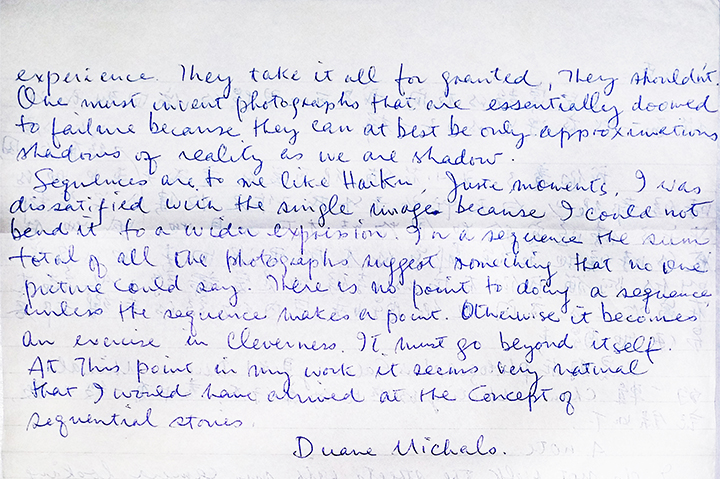 experience. They take it all for granted, They shouldn't.
One must invent photographs that are essentially doomed
to failure because they can at best be only approximations
shadows of reality as we are shadow.
Sequences are to me like Haiku, Juste moments, I was
dissatified with the single image because I could not
bend it to a wider expression. In a sequence the sum
total of all the photographs suggest something that no one
picture could say. There is no point to doing a sequence
unless the sequence makes a point. Otherwise it becomes
an exercise in cleverness. It must go beyond itself.
At This point in my work it seems very natural
that I would have arrived at the concept of
sequential stories.
Duane Michals.